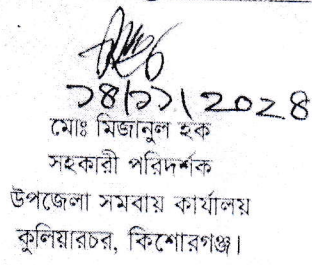 ১৪/১১/২০২৪
মোঃ মিজানুল হক
সহকারী পরিদর্শক
উপজেলা সমবায় কার্যালয়
কুলিয়ারচর, কিশোরগঞ্জ।